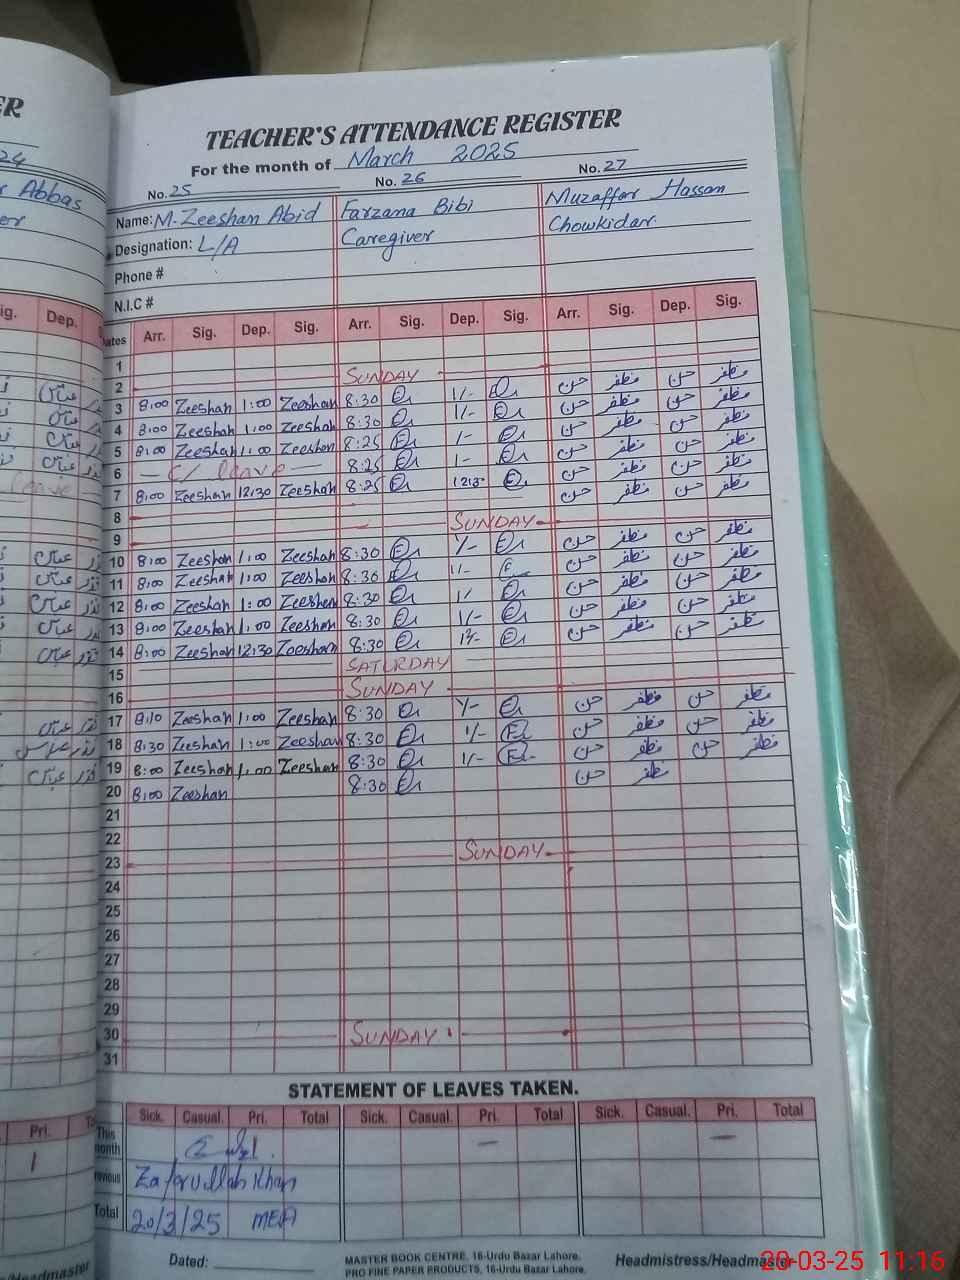 ER
TEACHER'S ATTENDANCE REGISTER
For the month of March 2025
24
No. 25 No. 26 No. 27
Abbas
Name: M. Zeeshan Abid Farzana Bibi Muzaffar Hassan
er
Designation: L/A Caregiver Chowkidar
Phone #
N.I.C #
ig. Dep.
ates Arr. Sig. Dep. Sig. Arr. Sig. Dep. Sig. Arr. Sig. Dep. Sig.
1
2 SUNDAY
3 8:00 Zeeshan 1:00 Zeeshan 8:30 1/- حسن مظفر حسن مظفر
4 8:00 Zeeshan 1:00 Zeeshan 8:30 1/- حسن مظفر حسن مظفر
5 8:00 Zeeshan 1:00 Zeeshan 8:25 1- حسن مظفر حسن مظفر
6 — C/ leave — 8:25 1- حسن مظفر حسن مظفر
7 8:00 Zeeshan 12:30 Zeeshan 8:25 حسن مظفر حسن مظفر
8
9 SUNDAY
10 8:00 Zeeshan 1:00 Zeeshan 8:30 1/- حسن مظفر حسن مظفر
11 8:00 Zeeshan 1:00 Zeeshan 8:30 1/- حسن مظفر حسن مظفر
12 8:00 Zeeshan 1:00 Zeeshan 8:30 1/- حسن مظفر حسن مظفر
13 8:00 Zeeshan 1:00 Zeeshan 8:30 1/- حسن مظفر حسن مظفر
14 8:00 Zeeshan 12:30 Zeeshan 8:30 حسن مظفر حسن مظفر
15 SATURDAY
16 SUNDAY
17 8:10 Zeeshan 1:00 Zeeshan 8:30 1/- حسن مظفر حسن مظفر
18 8:30 Zeeshan 1:00 Zeeshan 8:30 1/- حسن مظفر حسن مظفر
19 8:00 Zeeshan 1:00 Zeeshan 8:30 1/- حسن مظفر حسن مظفر
20 8:00 Zeeshan 8:30 حسن مظفر
21
22
23 SUNDAY
24
25
26
27
28
29
30 SUNDAY
31
STATEMENT OF LEAVES TAKEN.
Pri. Sick. Casual. Pri. Total Sick. Casual. Pri. Total Sick. Casual. Pri. Total
This month — —
1
Zafarullah Khan
Total 20/3/25 MEA
Dated:
MASTER BOOK CENTRE, 16-Urdu Bazar Lahore.
PRO FINE PAPER PRODUCTS, 16-Urdu Bazar Lahore.
Headmistress/Headmaster
/Headmaster
20-03-25 11:16